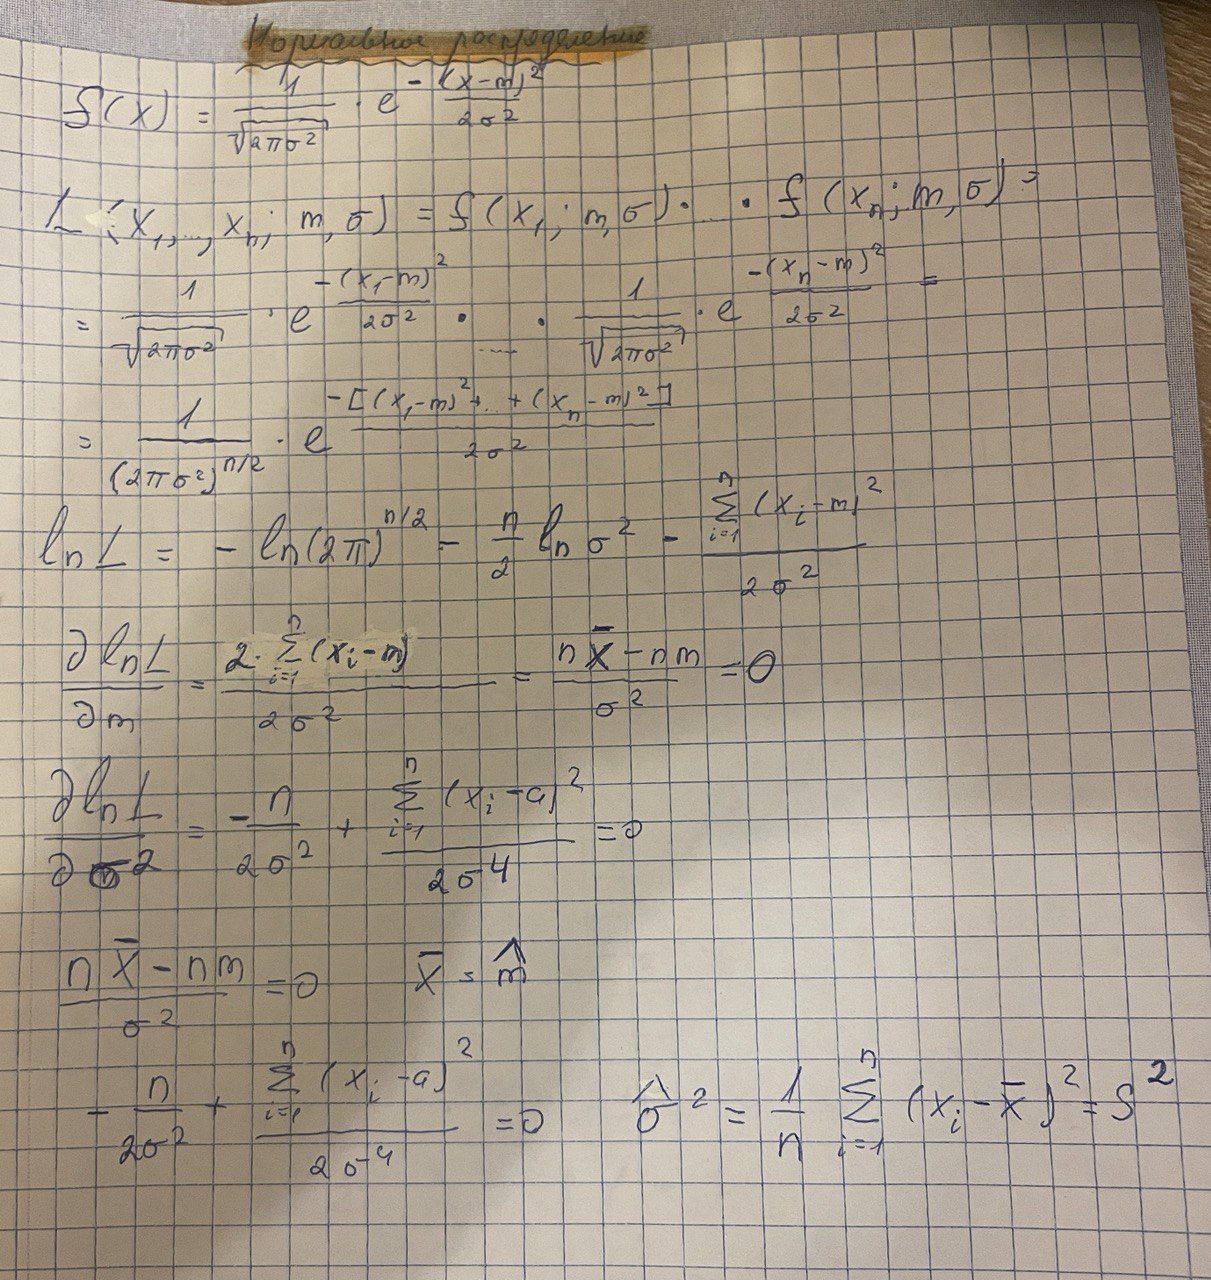 Нормальное распределение
f(x) = 1/√(2πσ²) · e^(-(x-m)²/2σ²)
L(x₁,..., xₙ; m, σ) = f(x₁; m, σ) · ... · f(xₙ; m, σ) =
= 1/√(2πσ²) · e^(-(x₁-m)²/2σ²) · .... · 1/√(2πσ²) · e^(-(xₙ-m)²/2σ²) =
= 1/(2πσ²)^(n/2) · e^(-[(x₁-m)²+..+(xₙ-m)²]/2σ²)
ln L = - ln(2π)^(n/2) - n/2 ln σ² - ∑ᵢ₌₁ⁿ (xᵢ-m)²/2σ²
∂ln L/∂m = 2·∑ᵢ₌₁ⁿ (xᵢ-m)/2σ² = (nx̄ - nm)/σ² = 0
∂ln L/∂σ² = -n/2σ² + ∑ᵢ₌₁ⁿ (xᵢ-a)²/2σ⁴ = 0
(nx̄ - nm)/σ² = 0 x̄ = m̂
- n/2σ² + ∑ᵢ₌₁ⁿ (xᵢ-a)²/2σ⁴ = 0 σ̂² = 1/n ∑ᵢ₌₁ⁿ (xᵢ-x̄)² = S²